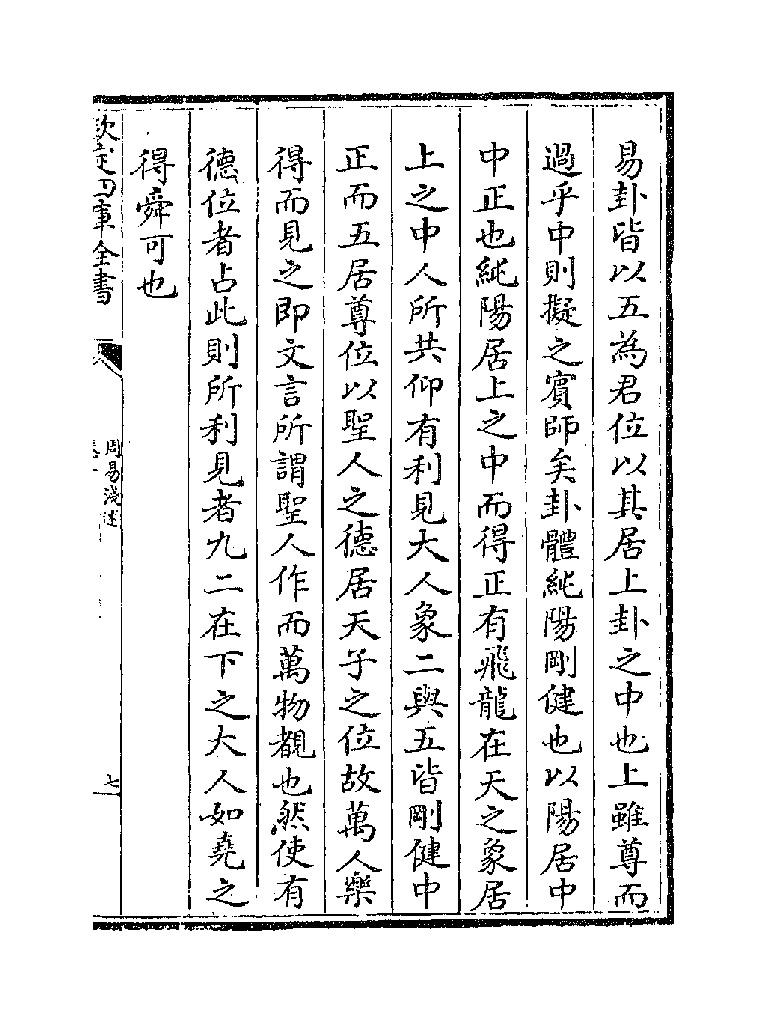 易卦皆以五為君位以其居上卦之中也上雖尊而
過乎中則擬之賓師矣卦體純陽剛健也以陽居中
中正也純陽居上之中而得正有飛龍在天之象居
上之中人所共仰有利見大人象二與五皆剛健中
正而五居尊位以聖人之德居天子之位故萬人樂
得而見之即文言所謂聖人作而萬物覩也然使有
德位者占此則所利見者九二在下之大人如堯之
得舜可也
欽定四庫全書
周易淺述
七